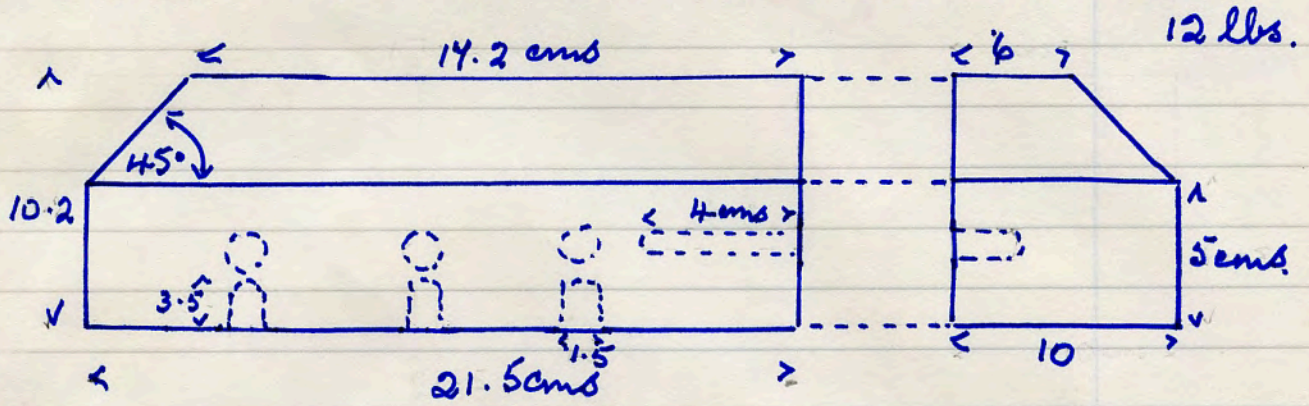 12 lbs.
17.2 cms
6
45°
10.2
4 cms
5 cms.
3.5
1.5
10
21.5 cms